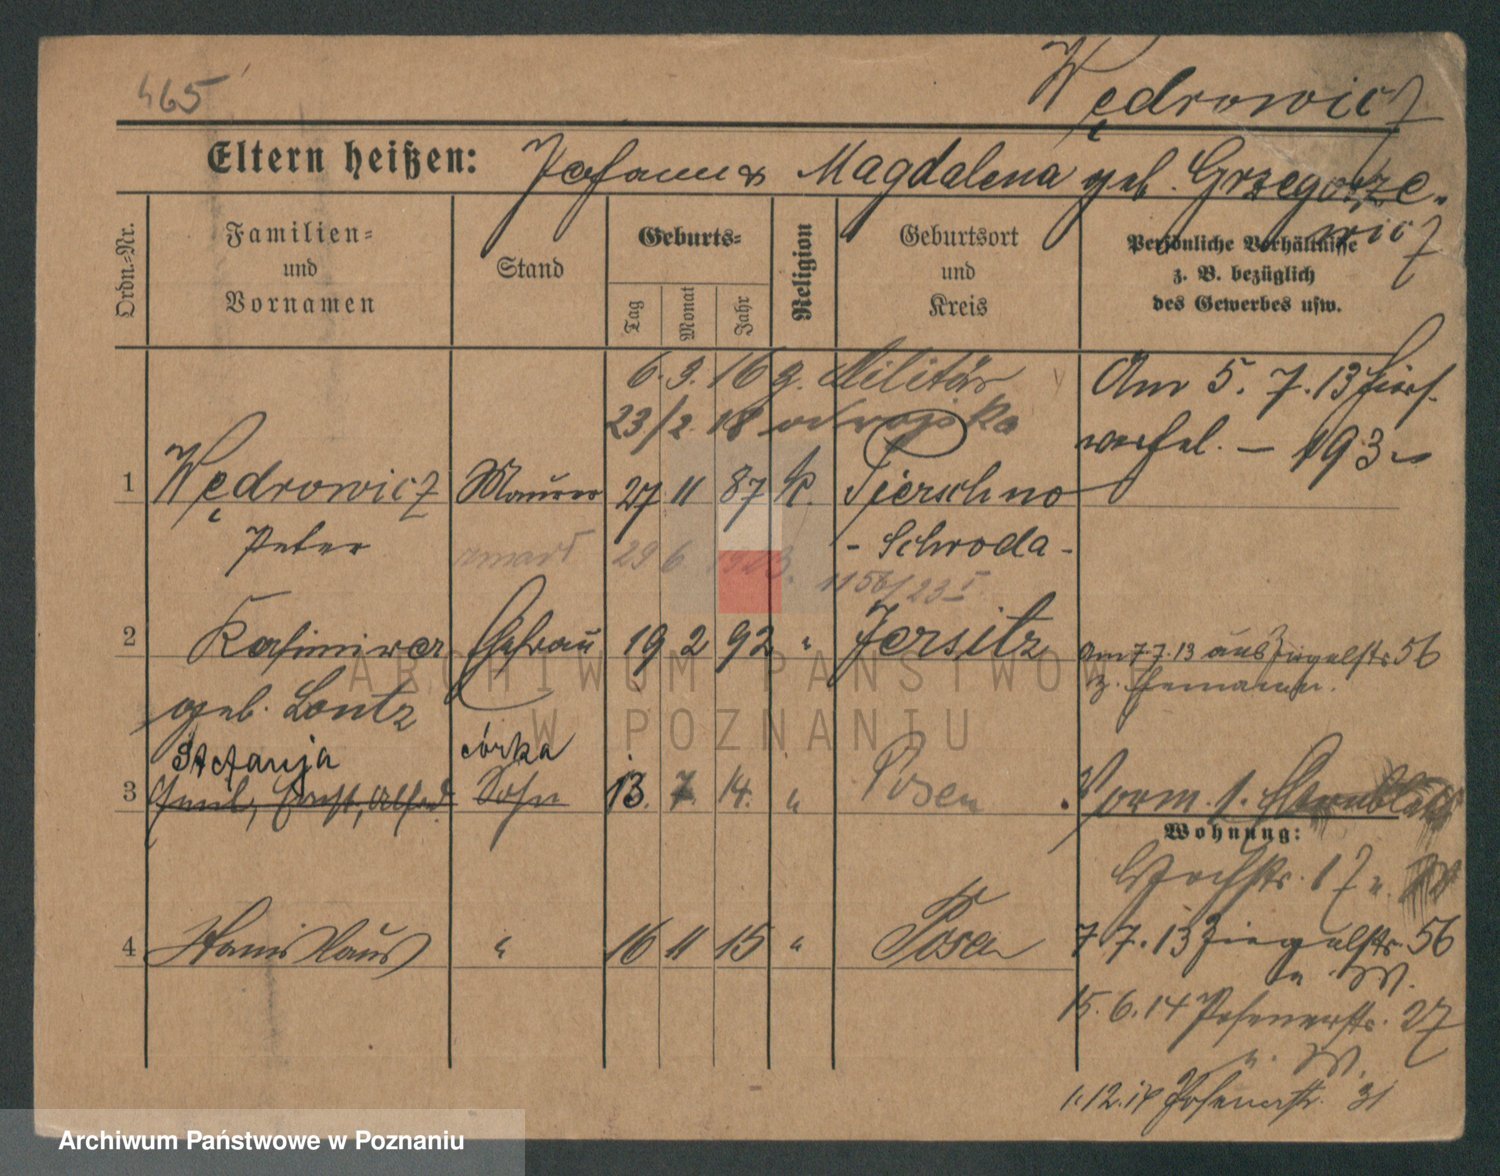 465
Wędrowicz
Eltern heißen: Johann u Magdalena geb. Grzegorze-
wicz
Ordn.-Nr.
Familien-
und
Vornamen
Stand
Geburts-
Tag
Monat
Jahr
Religion
Geburtsort
und
Kreis
Persönliche Verhältnisse
z. B. bezüglich
des Gewerbes usw.
6. 9. 16 z. Militär
23/2. 18 od wojska
Am 5. 7. 13
193
1 Wędrowicz Maurer 27 11 87 k. Pierschno
Peter
- Schroda -
zmarł 29 6 1923. 1156/23 I
2 Kasimira Ehefrau 19 2 92 " Jersitz
geb. Lontz
Am 7.7.13 aus Ziegelstr 56
z. Ehemann.
Stefanja córka
3 Emil, Ernst, Alfred Sohn 13. 7. 14. " Posen
Vorm. s.
Wohnung:
17
4 Stanislaus " 16 11 15 " Posen
7.7.13 Ziegelstr. 56
b. W.
15.6.14 Posenerstr. 27
b. W.
1.12.14 Posenerstr. 31
ARCHIWUM PAŃSTWOWE
W POZNANIU
Archiwum Państwowe w Poznaniu